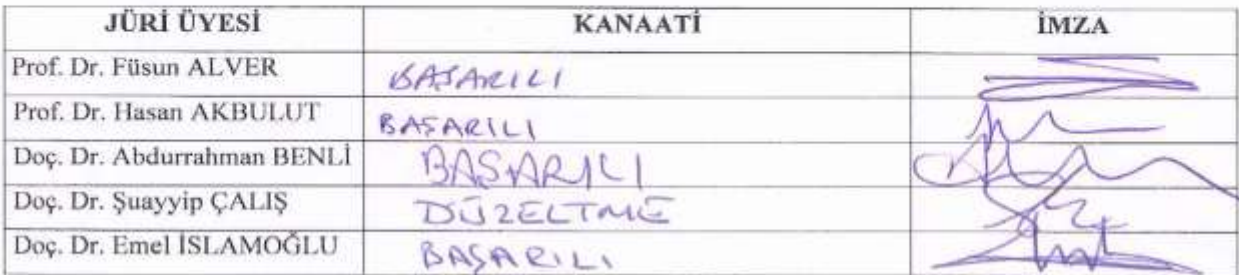 JÜRİ ÜYESİ KANAATİ İMZA
Prof. Dr. Füsun ALVER BAŞARILI
Prof. Dr. Hasan AKBULUT BAŞARILI
Doç. Dr. Abdurrahman BENLİ BAŞARILI
Doç. Dr. Şuayyip ÇALIŞ DÜZELTME
Doç. Dr. Emel İSLAMOĞLU BAŞARILI